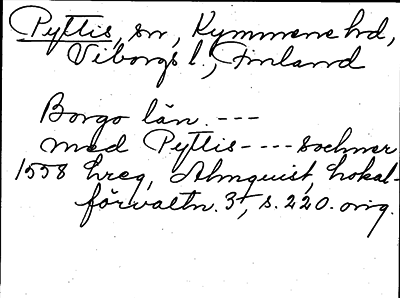 Pyttis, sn, Kymmene hd,
Viborgs l., Finland
Borgo län. ---
med Pyttis ---- sochner
1558 Ereg, Almquist, Lokal-
förvaltn. 3, s. 220. orig.